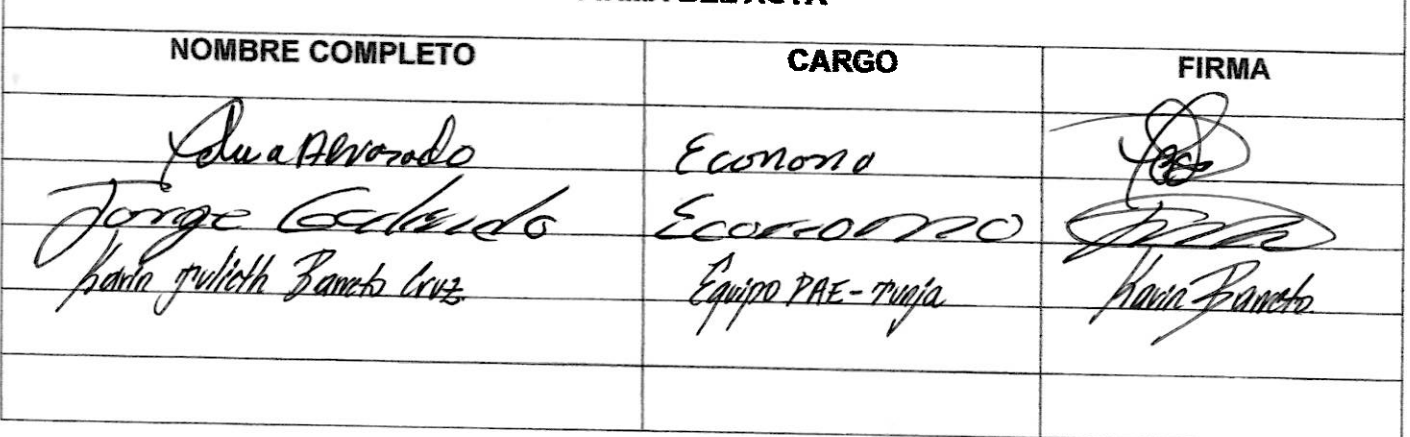 NOMBRE COMPLETO CARGO FIRMA
Alvarado Economo
Jorge Economo
Karin Julieth Barreto Cruz Equipo PAE-Tunja Karin Barreto